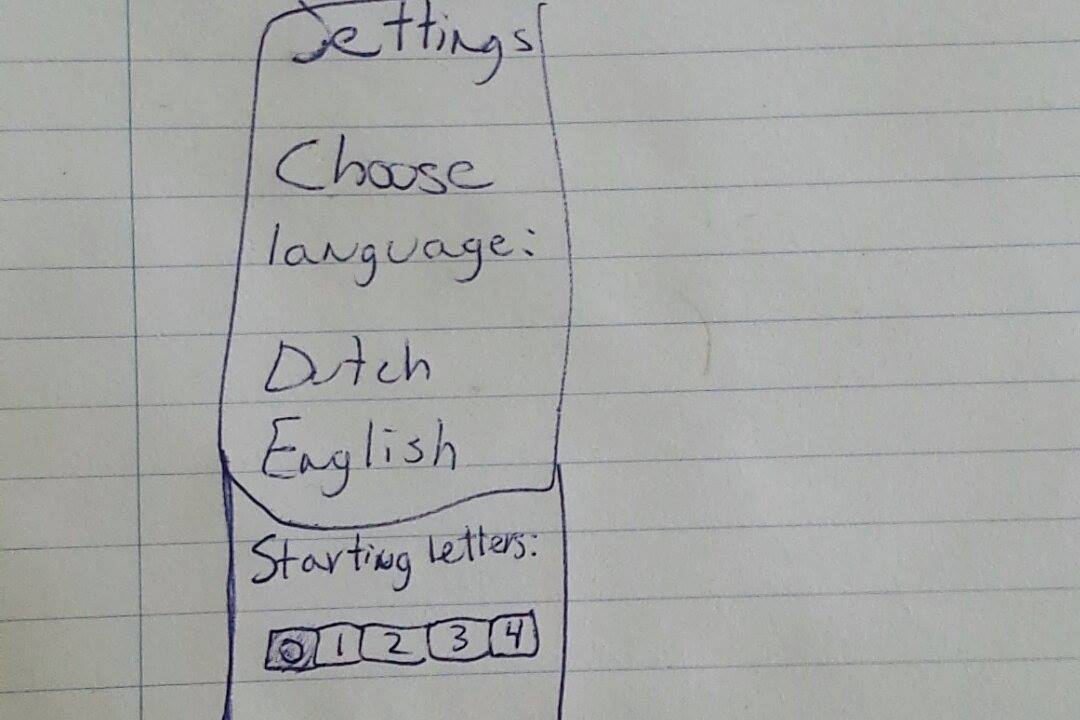 Settings
Choose
language:
Dutch
English
Starting letters:
0 1 2 3 4